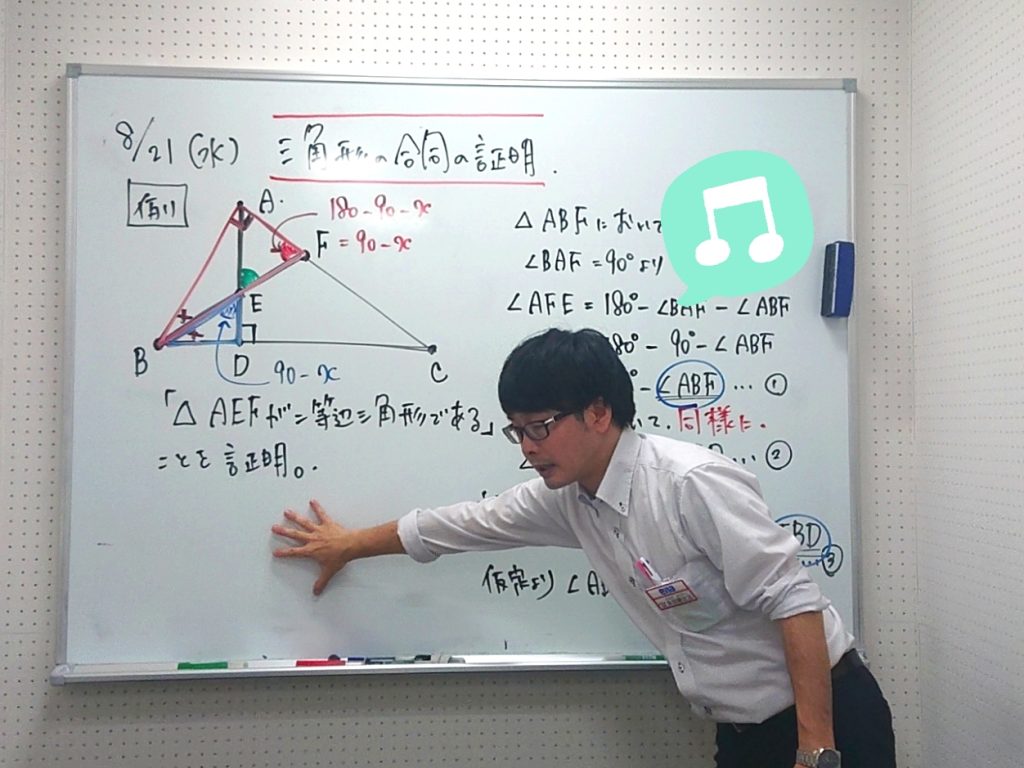 8/21 (水) 三角形の合同の証明.
例1)
A
180-90-x
F = 90-x
E
B
D
C
90-x
「△AEFが二等辺三角形である」
ことを証明。
△ABFにおいて
∠BAF = 90°より
∠AFE = 180° - ∠BAF - ∠ABF
80° - 90° - ∠ABF
- ∠ABF … ①
いて、同様に.
… ②
EBD
… ③
仮定より ∠A